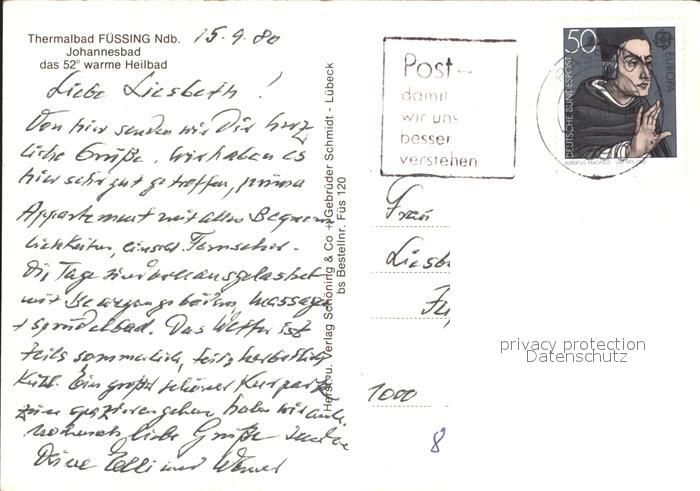 Thermalbad FÜSSING Ndb.
Johannesbad
das 52° warme Heilbad
15.9.80
Liebe Liesbeth!
Von hier senden wir Dir herz
liche Grüße. Wir haben es
hier sehr gut getroffen, prima
Appartement mit allen Bequem
lichkeiten, einschl. Fernseher.
Die Tage sind voll ausgelastet
mit Bewegungsbädern, Massage
+ Sprudelbad. Das Wetter ist
teils sommerlich, teils herbstlich
kühl. Ein großer schöner Kurpark
zum spazierengehen haben wir auch.
Nochmals liebe Grüße senden
Deine Elli und Werner
Herst. u. Verlag Schöning & Co + Gebrüder Schmidt - Lübeck
bs Bestellnr. Füs 120
Post -
damit
wir uns
besser
verstehen
50
DEUTSCHE BUNDESPOST
EUROPA
ALBERTUS MAGNUS
Frau
Liesb
1000
8
privacy protection
Datenschutz